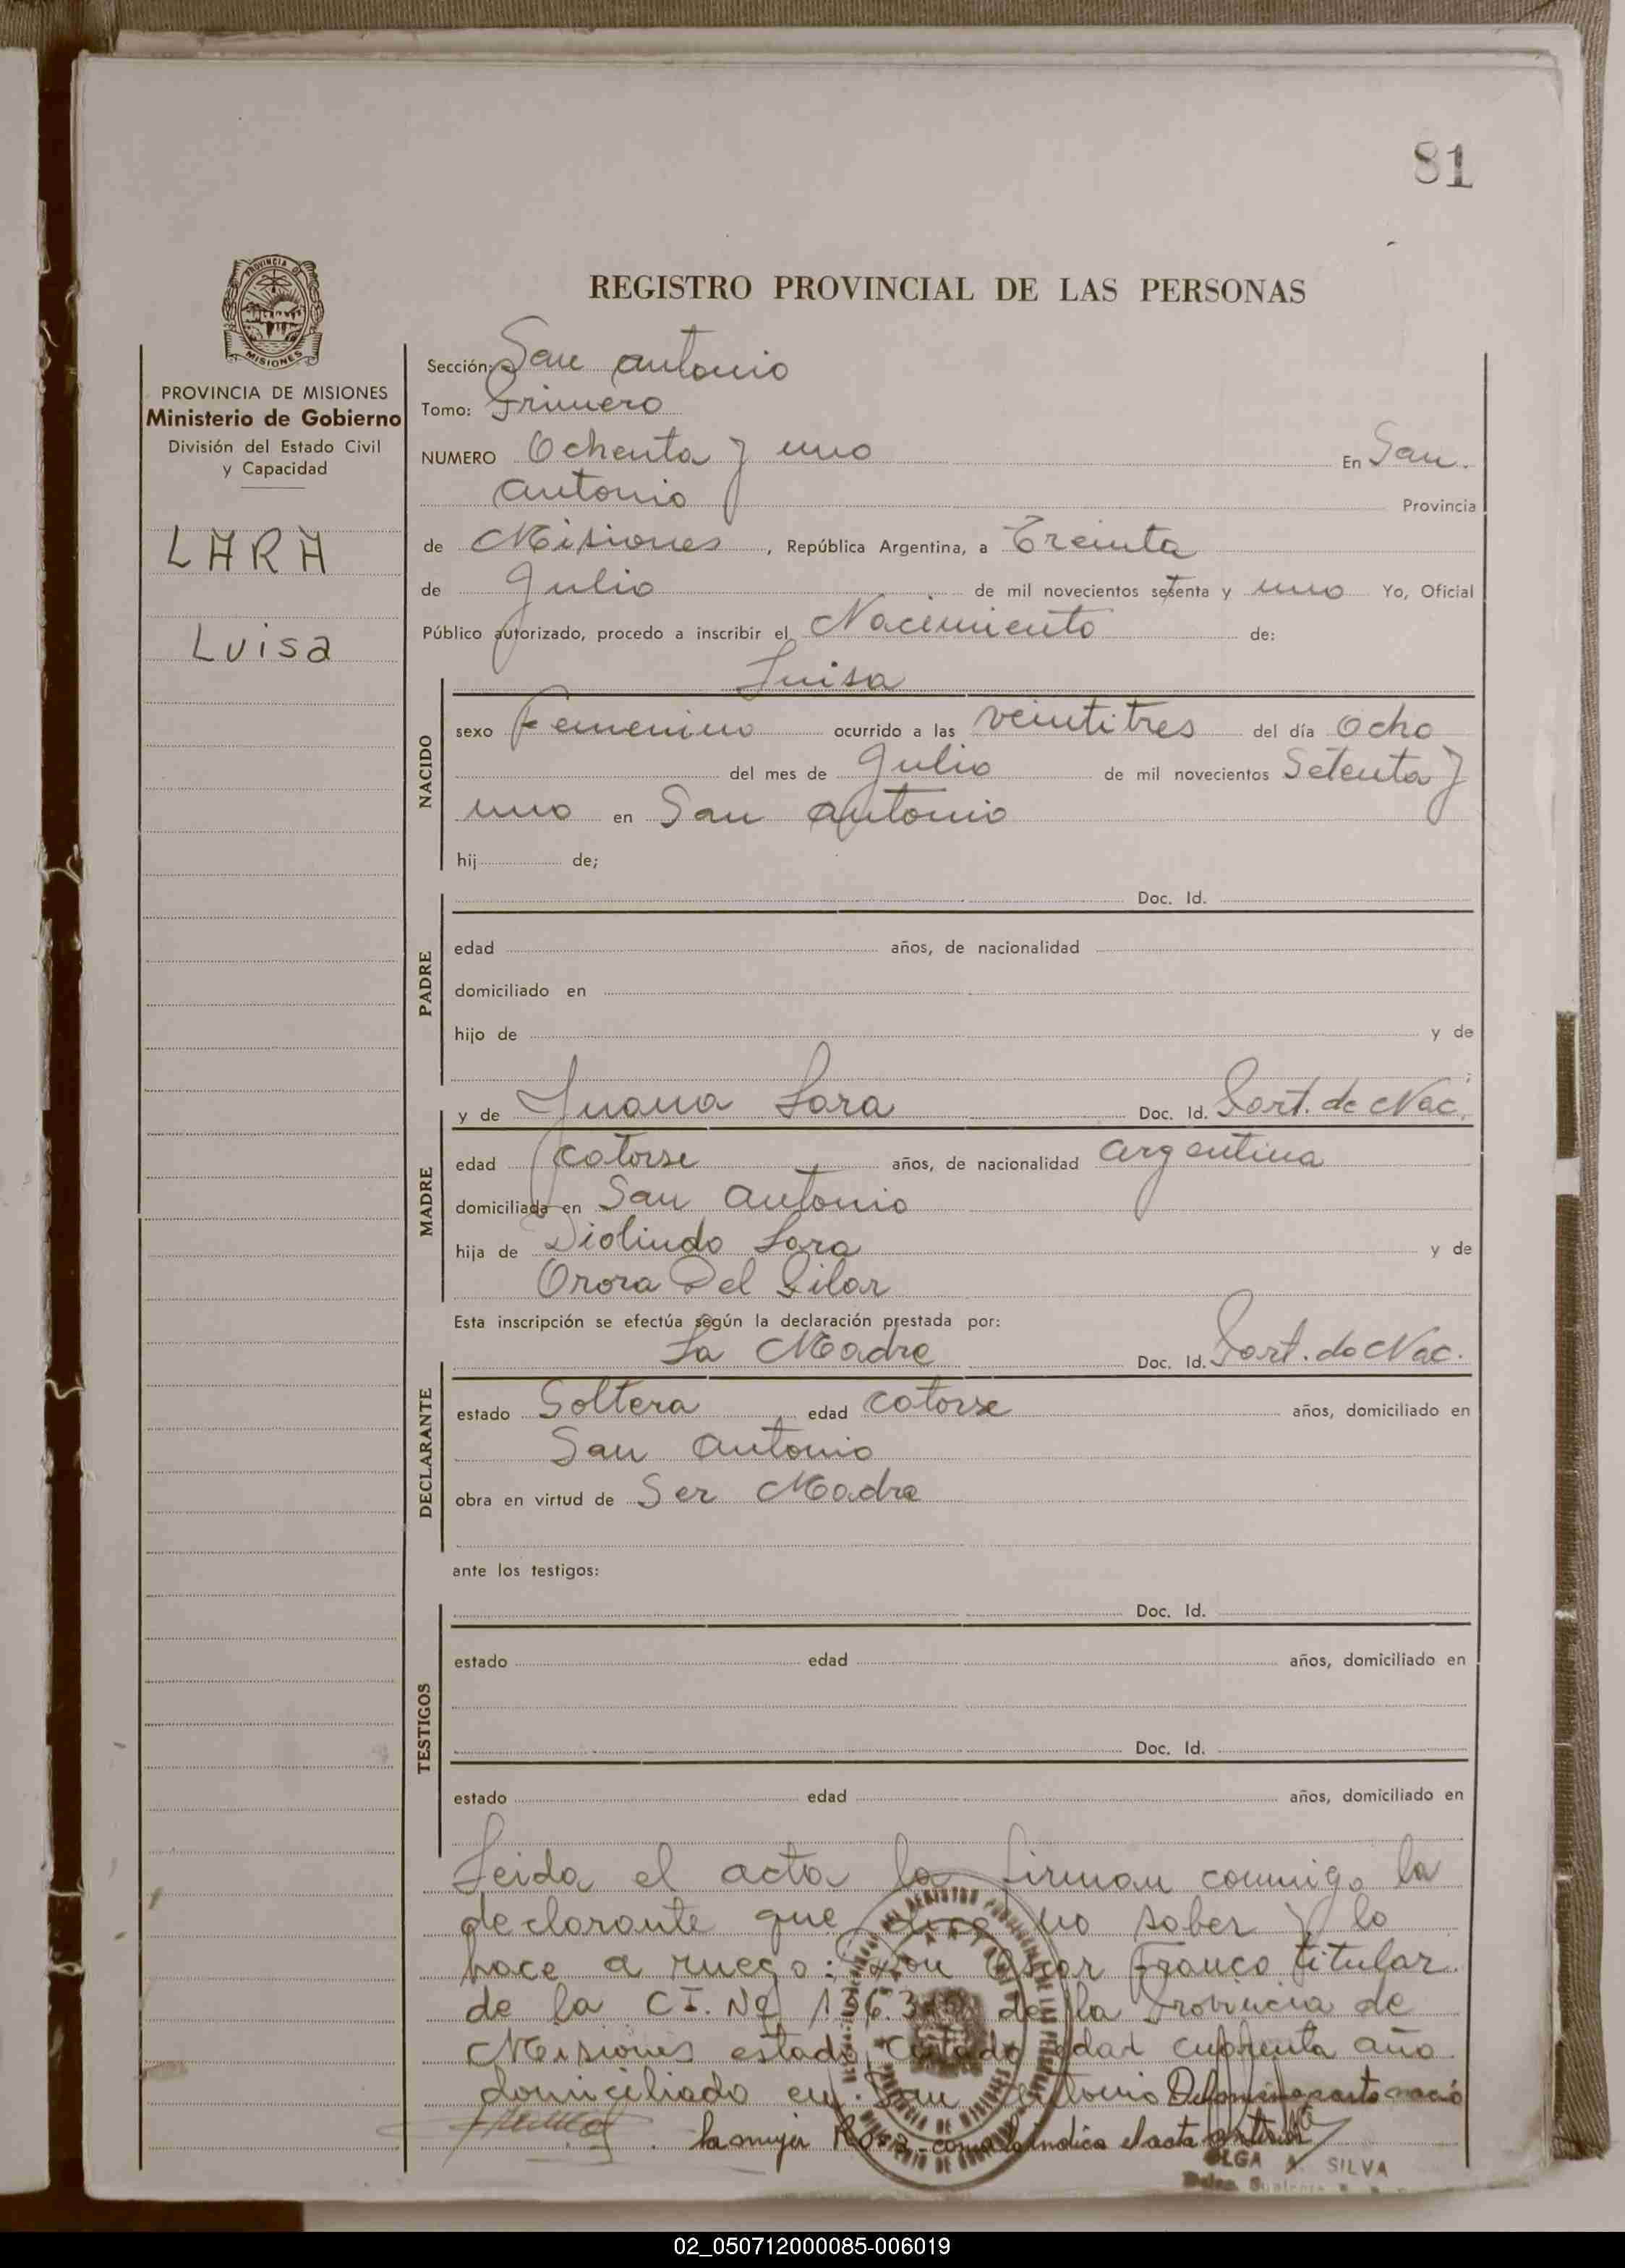 81
REGISTRO PROVINCIAL DE LAS PERSONAS
PROVINCIA DE MISIONES
Ministerio de Gobierno
División del Estado Civil
y Capacidad
LARA
Luisa
Sección: San Antonio
Tomo: Primero
NUMERO Ochenta y uno En San
Antonio Provincia
de Misiones, República Argentina, a Treinta
de Julio de mil novecientos setenta y uno Yo, Oficial
Público autorizado, procedo a inscribir el Nacimiento de:
Luisa
NACIDO
sexo Femenino ocurrido a las veintitres del día ocho
del mes de Julio de mil novecientos Setenta y
uno en San Antonio
hij de;
PADRE
Doc. Id.
edad años, de nacionalidad
domiciliado en
hijo de y de
MADRE
y de Juana Lara Doc. Id. Part. de Nac.
edad catorse años, de nacionalidad argentina
domiciliada en San Antonio
hija de Diolindo Lara y de
Orora Del Pilar
Esta inscripción se efectúa según la declaración prestada por:
DECLARANTE
La Madre Doc. Id. Part. de Nac.
estado Soltera edad catorse años, domiciliado en
San Antonio
obra en virtud de Ser Madre
ante los testigos:
TESTIGOS
Doc. Id.
estado edad años, domiciliado en
Doc. Id.
estado edad años, domiciliado en
Leida el acta la firman conmigo la
declarante que dice no saber y lo
hace a ruego: Don Oscar Franco titular
de la C.I. Nº de la Provincia de
Misiones estado casado edad cuarenta año
domiciliado en San Antonio Del mismo parto nació
la mujer Rosa - como lo indica el acta anterior
OLGA A. SILVA
02_050712000085-006019